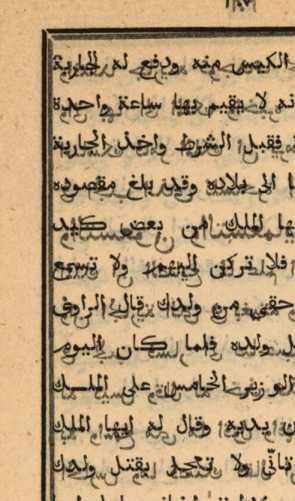 الكيس منه ودفع له الجارية
نه لا يقيم بها ساعة واحدة
فقبل الشرط واخذ الجارية
الى بلاده وقد بلغ مقصوده
يها الملك من بعض كيد
فلا تركن اليهم ولا تسمع
حقى من ولدك قال الراوى
ل ولده فلما كان اليوم
الوزير الخامس على الملك
ن يديه وقال له ايها الملك
تانى ولا تعجل بقتل ولدك